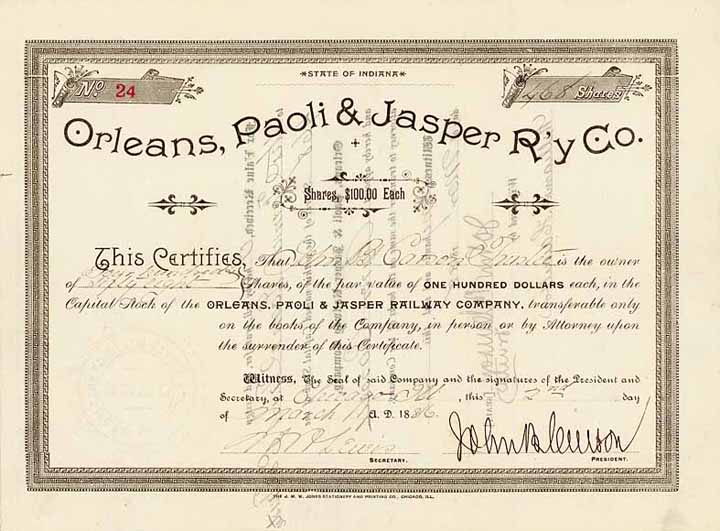 STATE OF INDIANA
No 24
468 Shares
Orleans, Paoli & Jasper R'y Co.
Shares, $100.00 Each
This Certifies, That John B. Carson Trustee is the owner
of Four Hundred & Sixty Eight Shares, of the par value of ONE HUNDRED DOLLARS each, in the
Capital Stock of the ORLEANS, PAOLI & JASPER RAILWAY COMPANY, transferable only
on the books of the Company, in person or by Attorney upon
the surrender of this Certificate.
Witness, The Seal of said Company and the signatures of the President and
Secretary, at Chicago Ill, this 2nd day
of March A. D. 1886.
Lewis John B Carson
SECRETARY. PRESIDENT.
THE J. M. W. JONES STATIONERY AND PRINTING CO., CHICAGO, ILL.